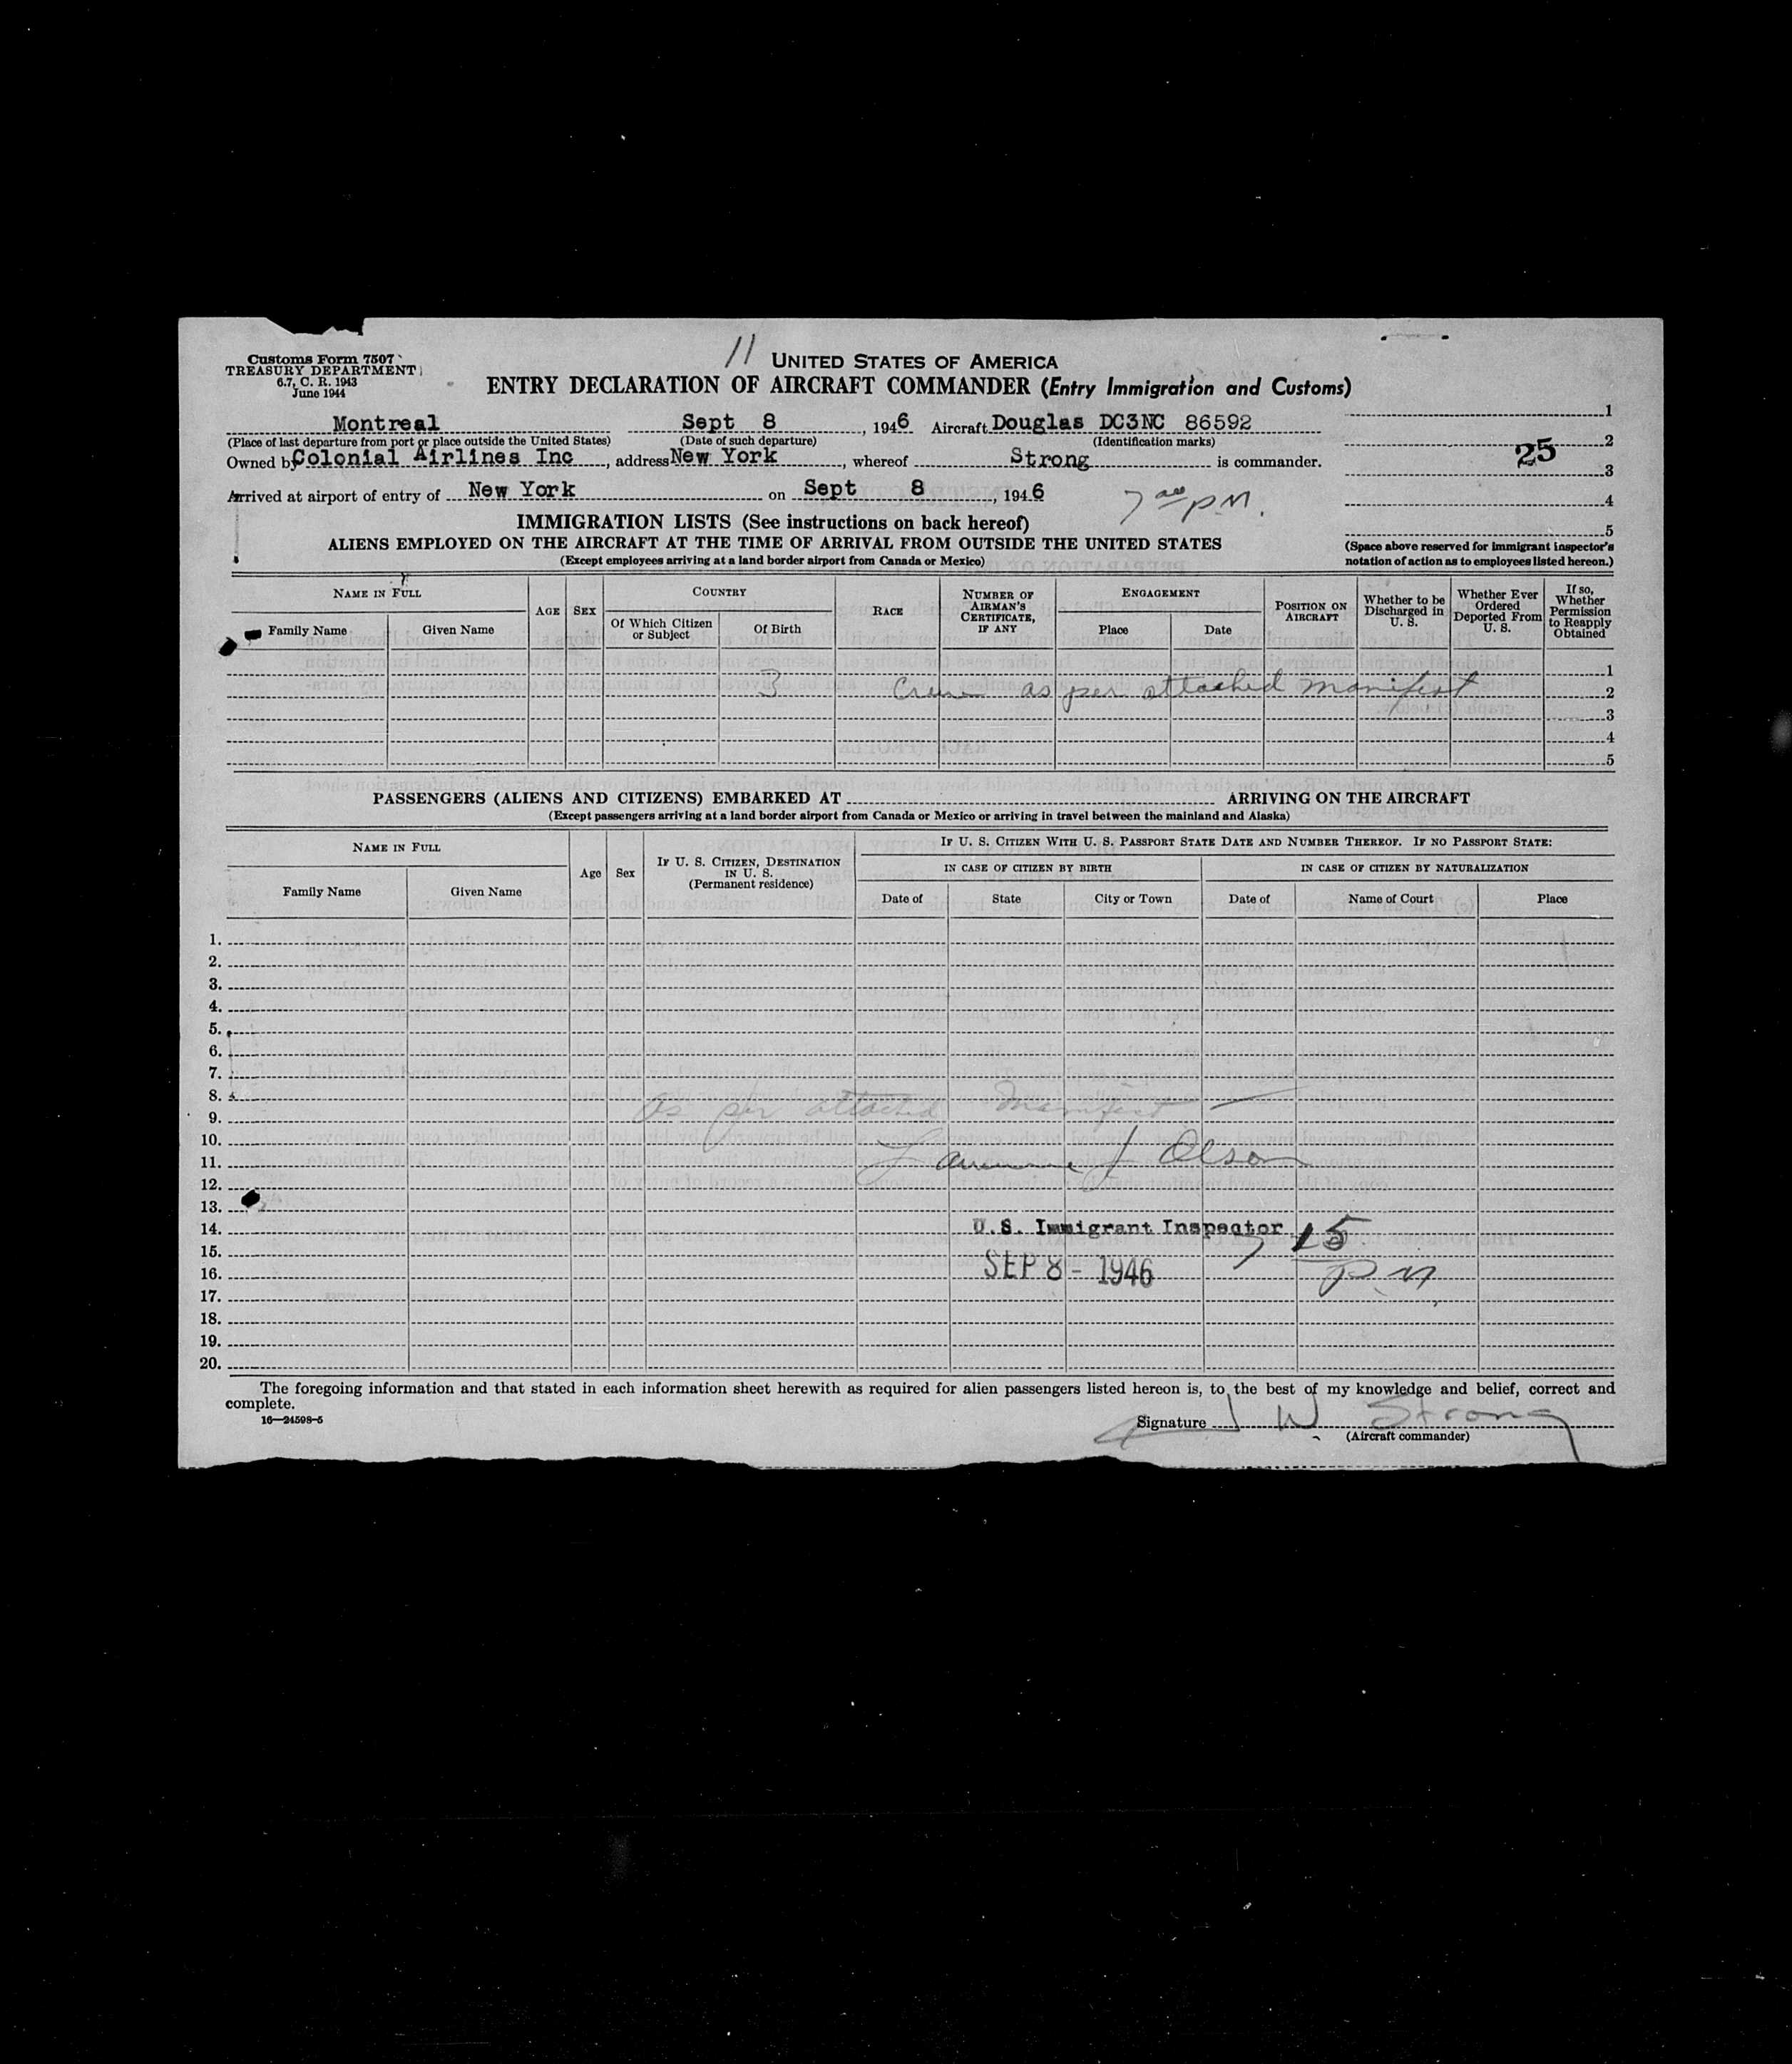 11
Customs Form 7507
TREASURY DEPARTMENT
6.7, C. R. 1943
June 1944
UNITED STATES OF AMERICA
ENTRY DECLARATION OF AIRCRAFT COMMANDER (Entry Immigration and Customs)
Montreal Sept 8, 1946 Aircraft Douglas DC3NC 86592
(Place of last departure from port or place outside the United States) (Date of such departure) (Identification marks)
Owned by Colonial Airlines Inc, address New York, whereof Strong is commander.
Arrived at airport of entry of New York on Sept 8, 1946
7 00 PM.
1
2
25
3
4
5
(Space above reserved for immigrant inspector's
notation of action as to employees listed hereon.)
IMMIGRATION LISTS (See instructions on back hereof)
ALIENS EMPLOYED ON THE AIRCRAFT AT THE TIME OF ARRIVAL FROM OUTSIDE THE UNITED STATES
(Except employees arriving at a land border airport from Canada or Mexico)
NAME IN FULL
Family Name Given Name
AGE SEX
COUNTRY
Of Which Citizen or Subject Of Birth
RACE
NUMBER OF AIRMAN'S CERTIFICATE, IF ANY
ENGAGEMENT
Place Date
POSITION ON AIRCRAFT
Whether to be Discharged in U. S.
Whether Ever Ordered Deported From U. S.
If so, Whether Permission to Reapply Obtained
1
3 Crew as per attached manifest 2
3
4
5
PASSENGERS (ALIENS AND CITIZENS) EMBARKED AT ARRIVING ON THE AIRCRAFT
(Except passengers arriving at a land border airport from Canada or Mexico or arriving in travel between the mainland and Alaska)
NAME IN FULL
Family Name Given Name
Age Sex
IF U. S. CITIZEN, DESTINATION IN U. S.
(Permanent residence)
IF U. S. CITIZEN WITH U. S. PASSPORT STATE DATE AND NUMBER THEREOF. IF NO PASSPORT STATE:
IN CASE OF CITIZEN BY BIRTH IN CASE OF CITIZEN BY NATURALIZATION
Date of State City or Town Date of Name of Court Place
1.
2.
3.
4.
5.
6.
7.
8.
as per attached manifest
9.
10.
11. Olson
12.
13.
14. U.S. Immigrant Inspector 7 15
15.
16. SEP 8 - 1946 P.M
17.
18.
19.
20.
The foregoing information and that stated in each information sheet herewith as required for alien passengers listed hereon is, to the best of my knowledge and belief, correct and
complete.
16—24598-5
Signature J W Strong
(Aircraft commander)